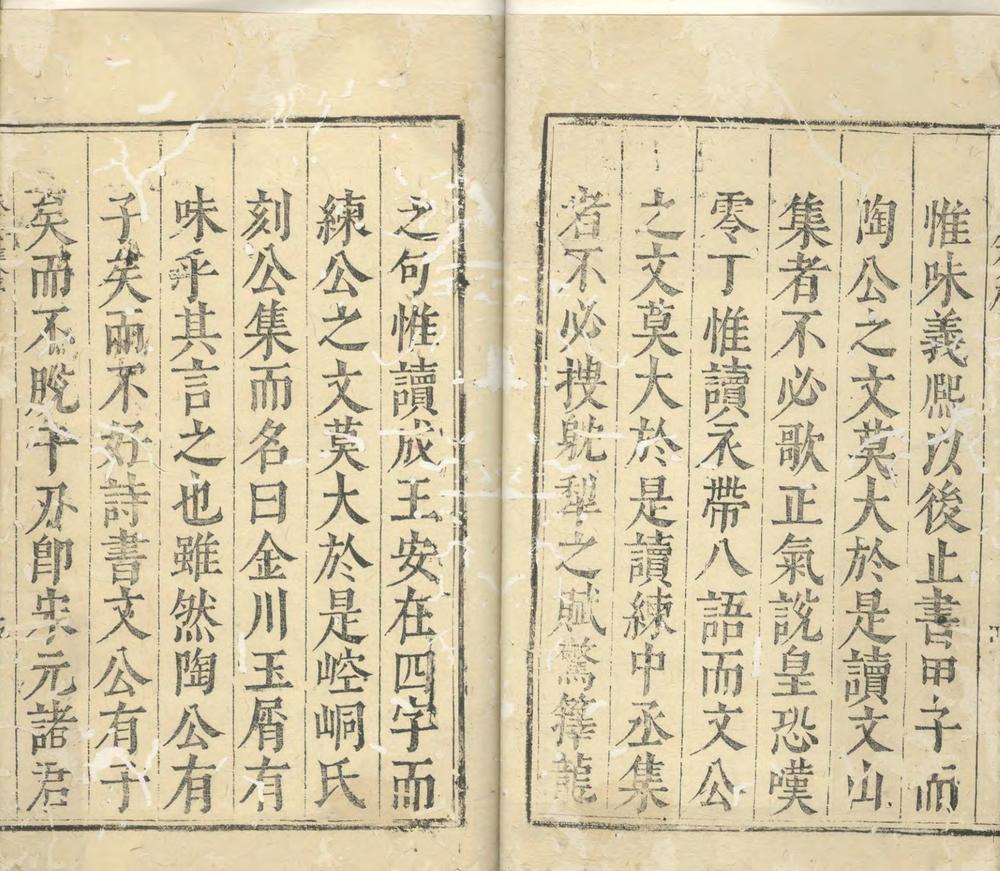 惟味義熈以後止書甲子而
陶公之文莫大於是讀文山
集者不必歌正氣說皇恐嘆
零丁惟讀衣帶八語而文公
之文莫大於是讀練中丞集
者不必捜犁之賦驚籜龍
之句惟讀成王安在四字而
練公之文莫大於是崆峒氏
刻公集而名曰金川玉屑有
味乎其言之也雖然陶公有
子矣而不好詩書文公有子
矣而不脫于刃卽宋元諸君